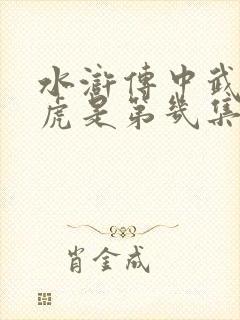 水滸傳中武
虎是第幾集
肖金成